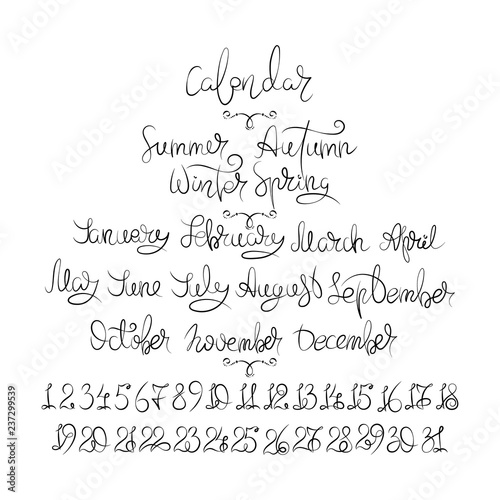 Calendar
Summer Autumn
Winter Spring
January February March April
May June July August September
October November December
1 2 3 4 5 6 7 8 9 10 11 12 13 14 15 16 17 18
19 20 21 22 23 24 25 26 27 28 29 30 31
Adobe Stock | #237299539